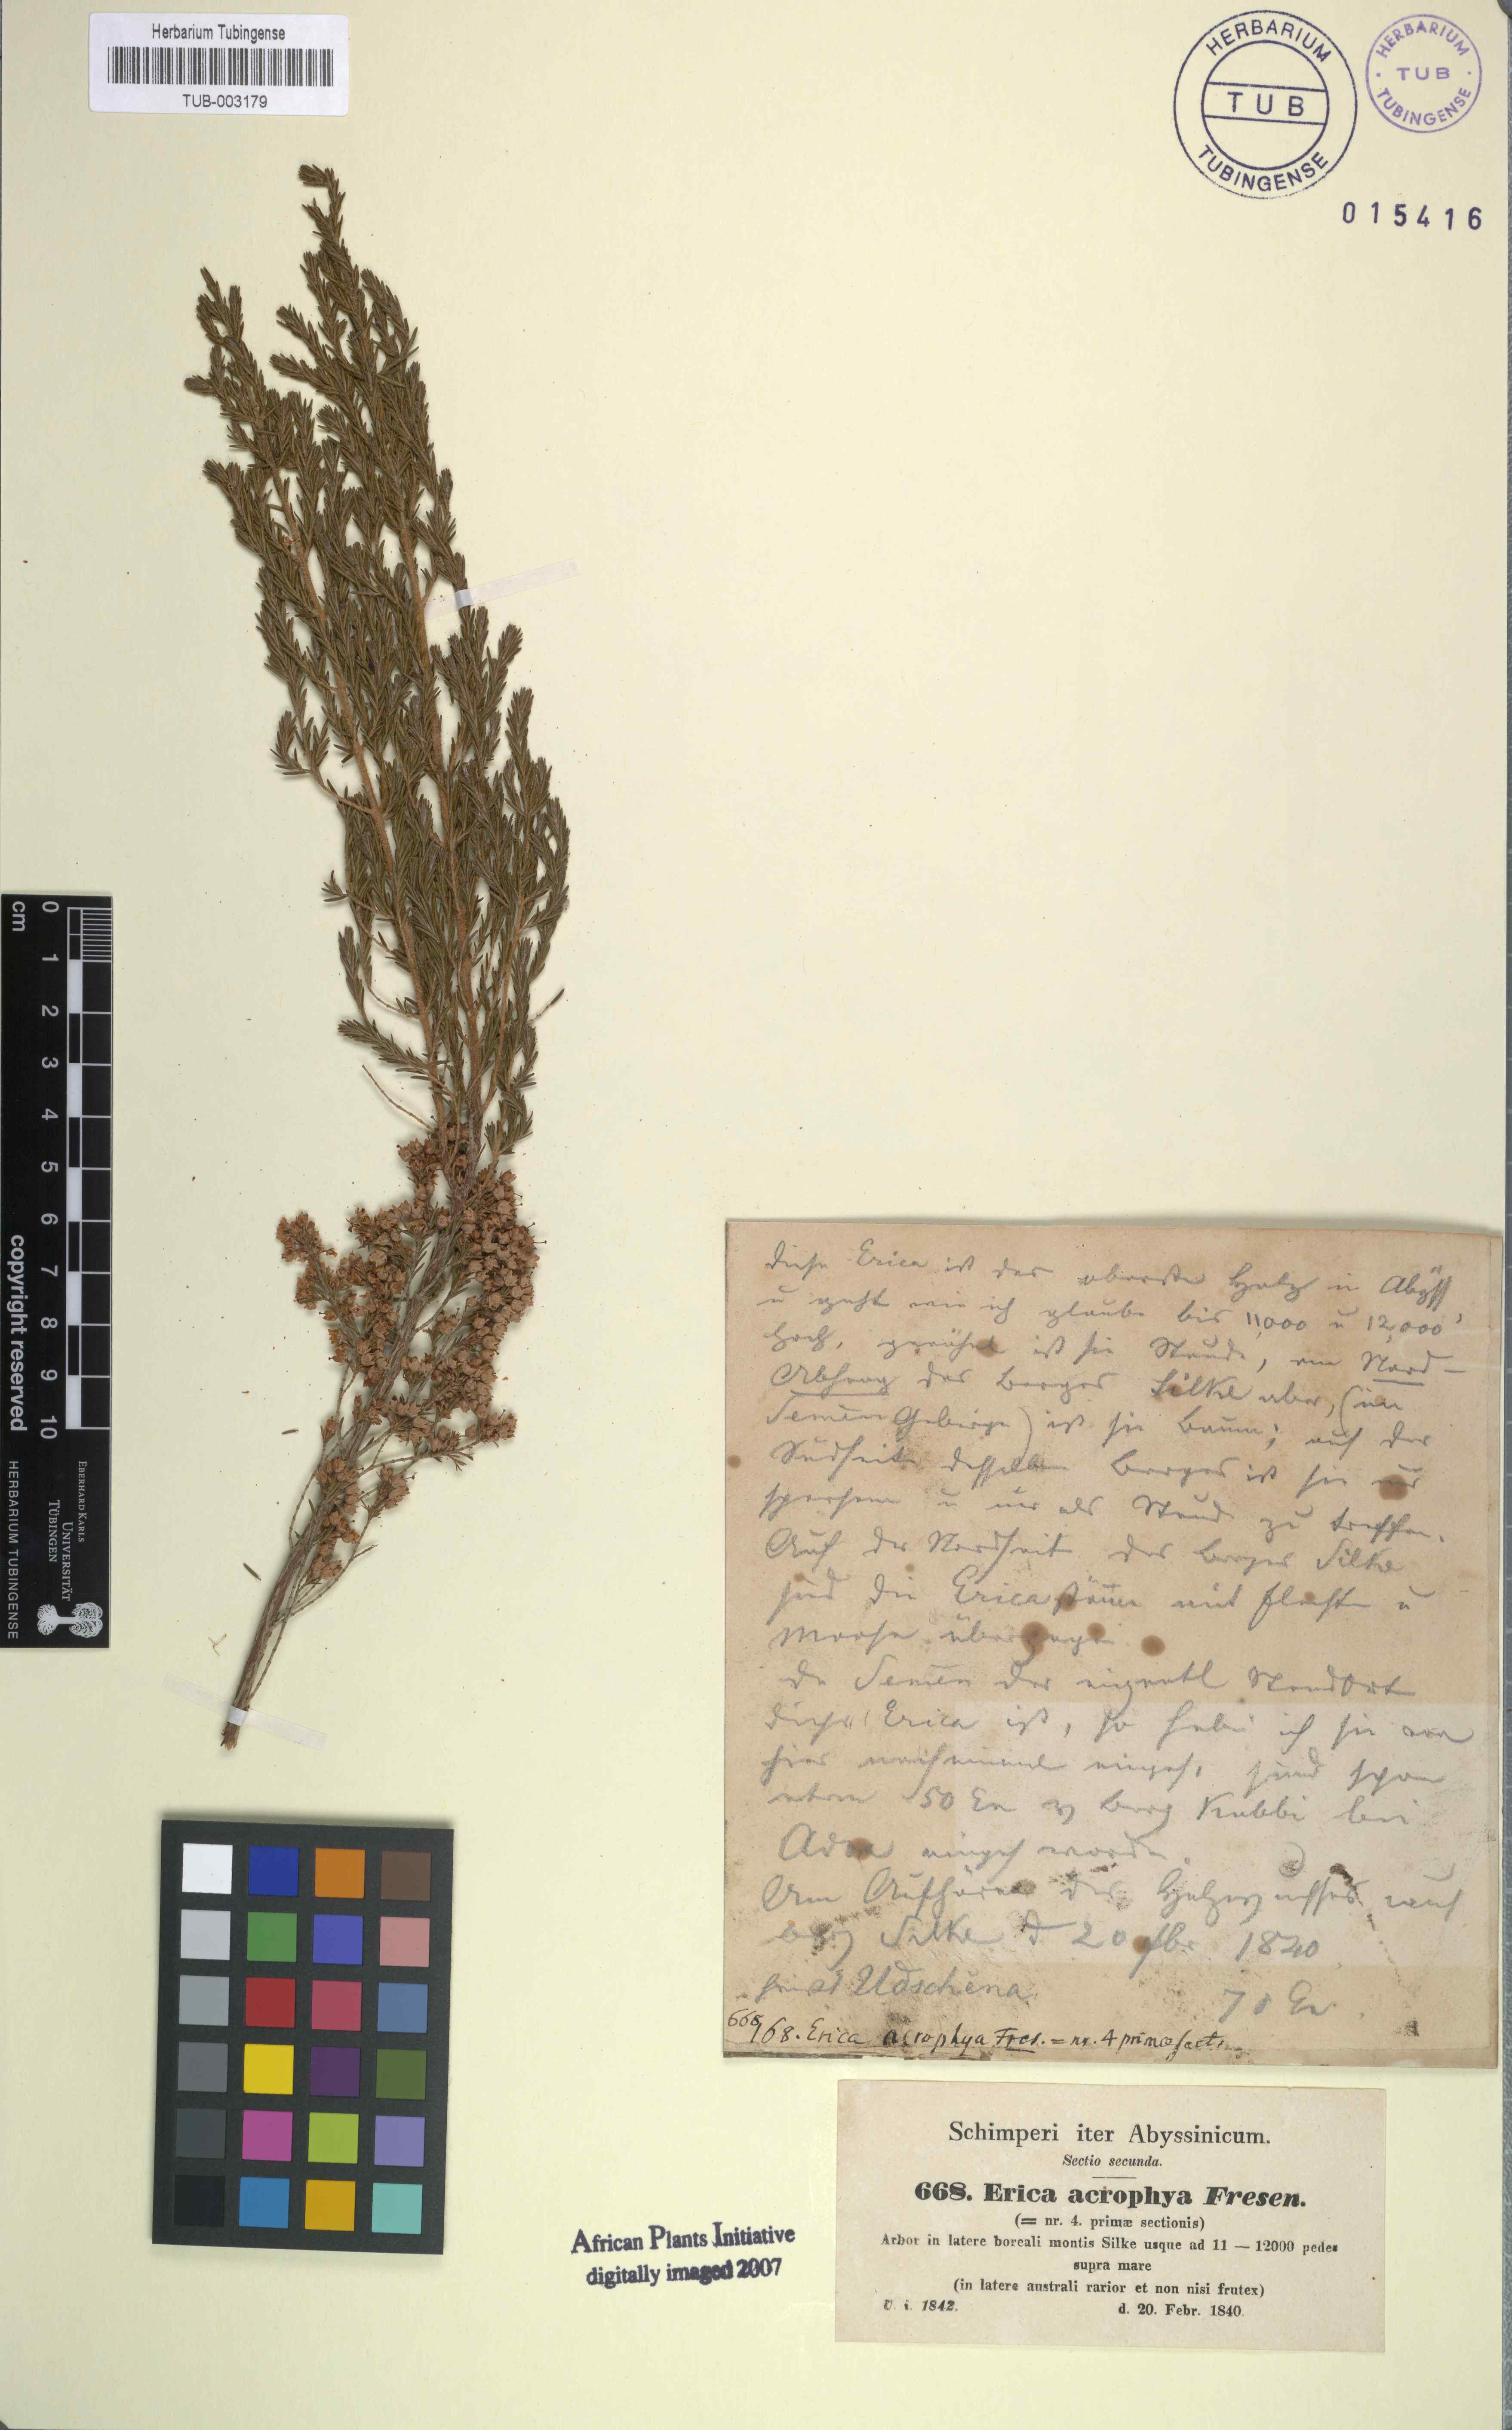 Herbarium Tubingense
TUB-003179
HERBARIUM
TUB
TUBINGENSE
HERBARIUM
TUB
TUBINGENSE
015416
cm
0 1 2 3 4 5 6 7 8 9 10
copyright reserved
HERBARIUM TUBINGENSE
EBERHARD KARLS
UNIVERSITÄT
TÜBINGEN
diese Erica ist das oberste Holz in Abyss
u geht wie ich glaube bis 11,000 u 12,000'
hoch, ist sie Staude, am Nord-
Abhang des Berges Silke aber, (im
Semen Gebirge) ist sie Baum; auf der
Südseite desselben Berges ist sie nur
sparsam u nur als Staude zu treffen.
Auf der Nordseite des Berges Silke
sind die Erica mit Flechten u
Moose überzogen
da Semen der eigentl Standort
dieser Erica ist, so habe ich sie von
hier nochmal schon
50 Ex Berg Kubbi bei
Adoa worden.
Am Aufhören des Holzwuchses auf
Berg Silke d 20 fbr 1840
70 Ex.
668
168. Erica acrophya Fres. = nr. 4 primæ sect.
Schimperi iter Abyssinicum.
Sectio secunda.
668. Erica acrophya Fresen.
(= nr. 4. primæ sectionis)
Arbor in latere boreali montis Silke usque ad 11 — 12000 pedes
supra mare
(in latere australi rarior et non nisi frutex)
U. i. 1842. d. 20. Febr. 1840.
African Plants Initiative
digitally imaged 2007